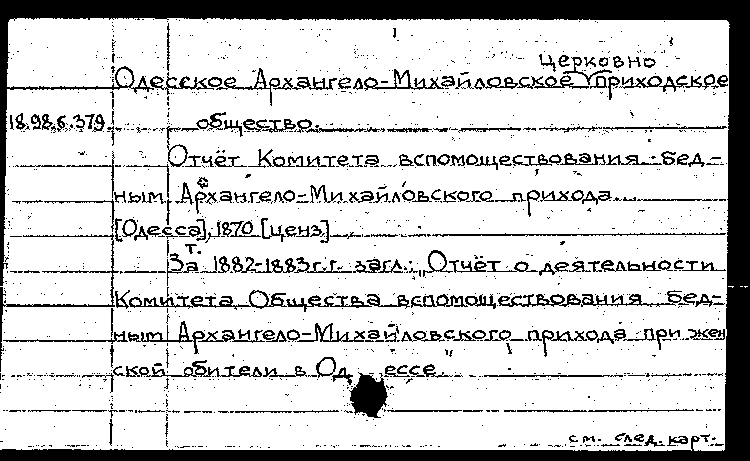 церковно
Одесское Архангело-Михайловское приходское
18.98.6.379. общество.
Отчёт Комитета вспомоществования бед-
ным Архангело-Михайловского прихода...
[Одесса], 1870 [ценз]
т.
За 1882-1883 г.г. загл.: „Отчёт о деятельности
Комитета Общества вспомоществования бед-
ным Архангело-Михайловского прихода при жен
ской обители в Одессе."
см. след. карт.